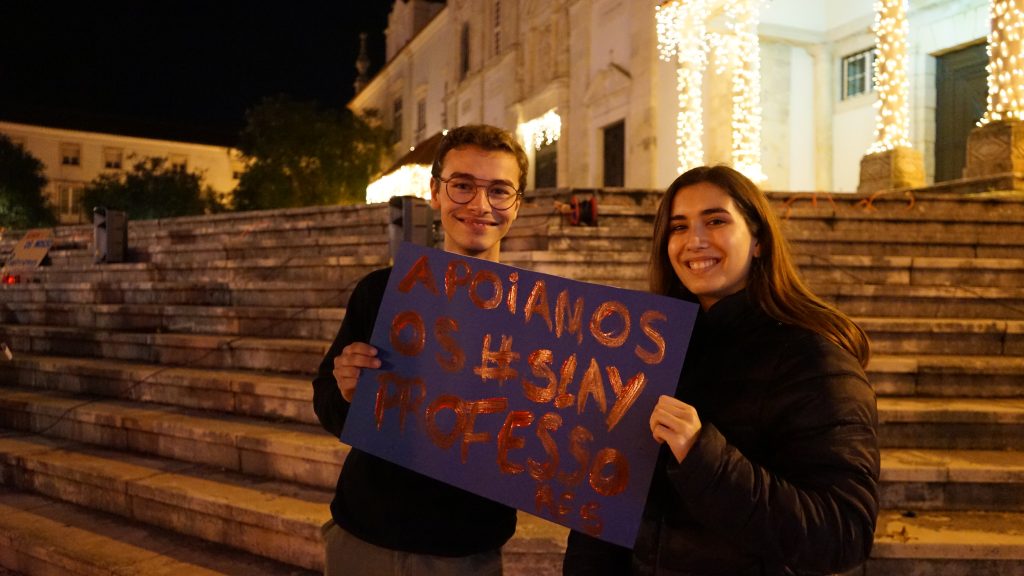 APOiAMOS
OS #SLAY
PROFESSO
RES